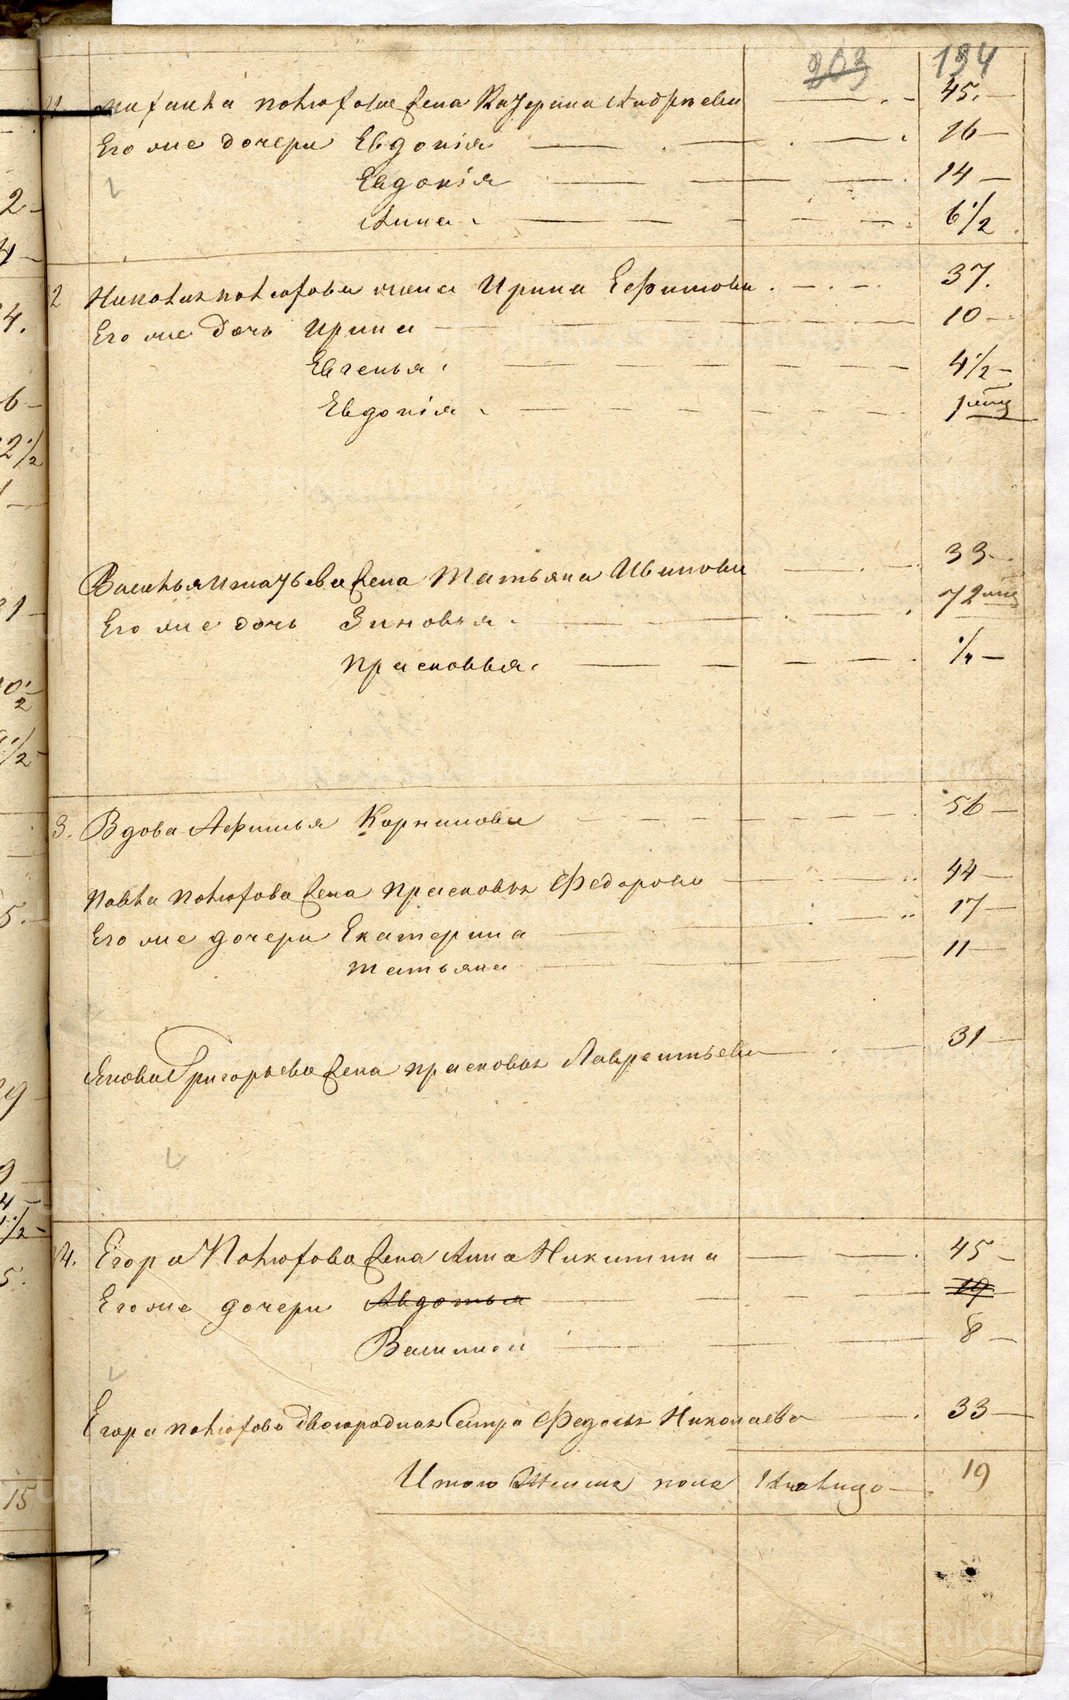 203 194
Михайла Полюхова жена Катерина Андреева 45.
Его же дочери Евдокія 16
Евдокія 14
Анна 6 1/2
2 Николая Полюхова жена Ирина Ефимова 37.
Его же дочь Ирина 10
Евгенья 4 1/2
Евдокія 1 мец
Василья Игнатьева жена Татьяна Иванова 33
Его же дочь Зиновья
Прасковья
3. Вдова Афимья Корнилова 56
Павла Полюхова жена Прасковья Федорова 44
Его же дочери Екатерина 17
Татьяна 11
Якова Григорьева жена Прасковья Лаврентьева 31
4. Егора Полюхова жена Анна Никитина 45
Его же дочери Авдотья 19
8
Егора Полюхова двоюродная Сестра Федосья Николаева 33
Итого Женска пола налицо 19
2
4
4.
6
2 1/2
1
9
4
1/2
5.
15